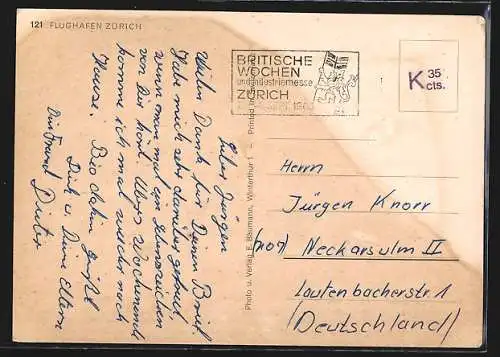 121 FLUGHAFEN ZÜRICH
Lieber Jürgen
Vielen Dank für Deinen Brief
Habe mich sehr darüber gefreut
wenn man mal ein Lebenszeichen
von Dir hört. Übers Wochenende
komme ich mal wieder nach
Hause. Bis dahin grüßt
Dich u. Deine Eltern
Dein Freund Dieter
Photo u. Verlag E. Baumann, Winterthur 1 – Printed in
BRITISCHE
WOCHEN
und Industriemesse
ZÜRICH
K 35
cts.
Herrn
Jürgen Knorr
(7107) Neckarsulm II
Lautenbacherstr 1
(Deutschland)